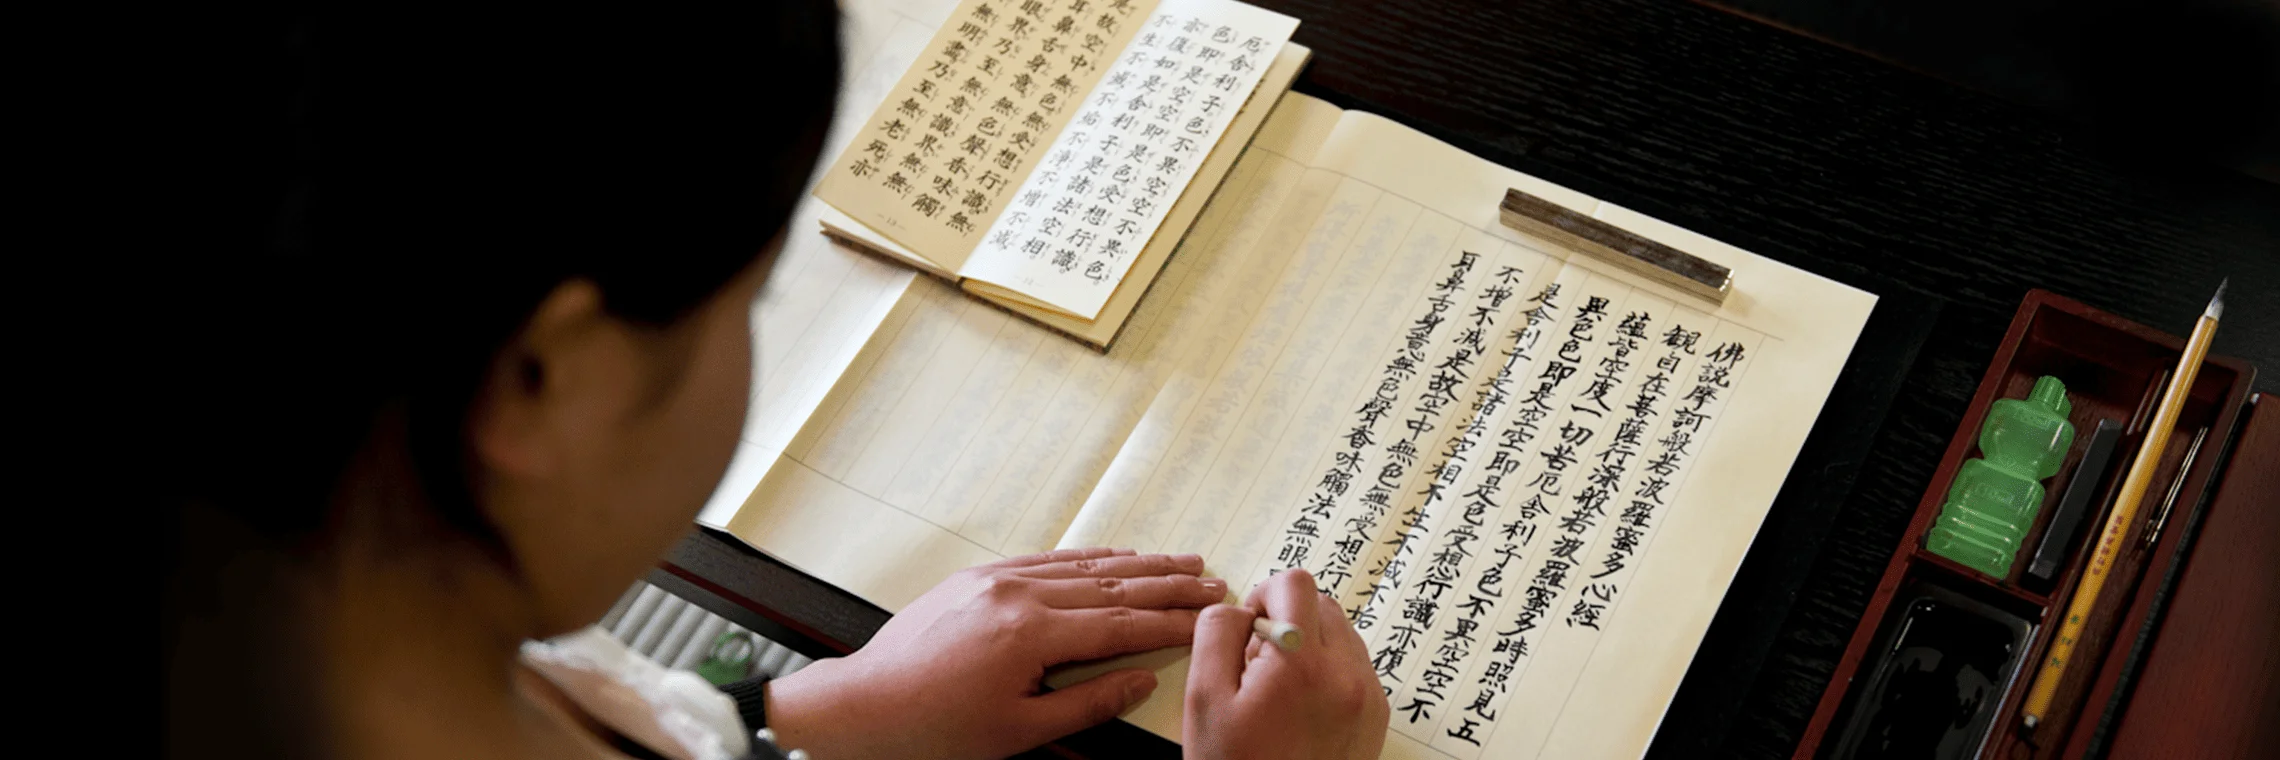 厄舎利子色不異空空不異色
色即是空空即是色受想行識
亦復如是舎利子是諸法空相
不生不滅不垢不淨不増不減
是故空中無色無受想行識無
耳鼻舌身意無色聲香味觸
眼界乃至無意識界無無
無明盡乃至無老死亦
佛説摩訶般若波羅蜜多心經
観自在菩薩行深般若波羅蜜多時照見五
蘊皆空度一切苦厄舎利子色不異空空不
異色色即是空空即是色受想行識亦復
是舎利子是諸法空相不生不滅不垢
不増不減是故空中無色無受想行
耳鼻舌身意無色聲香味觸法無眼